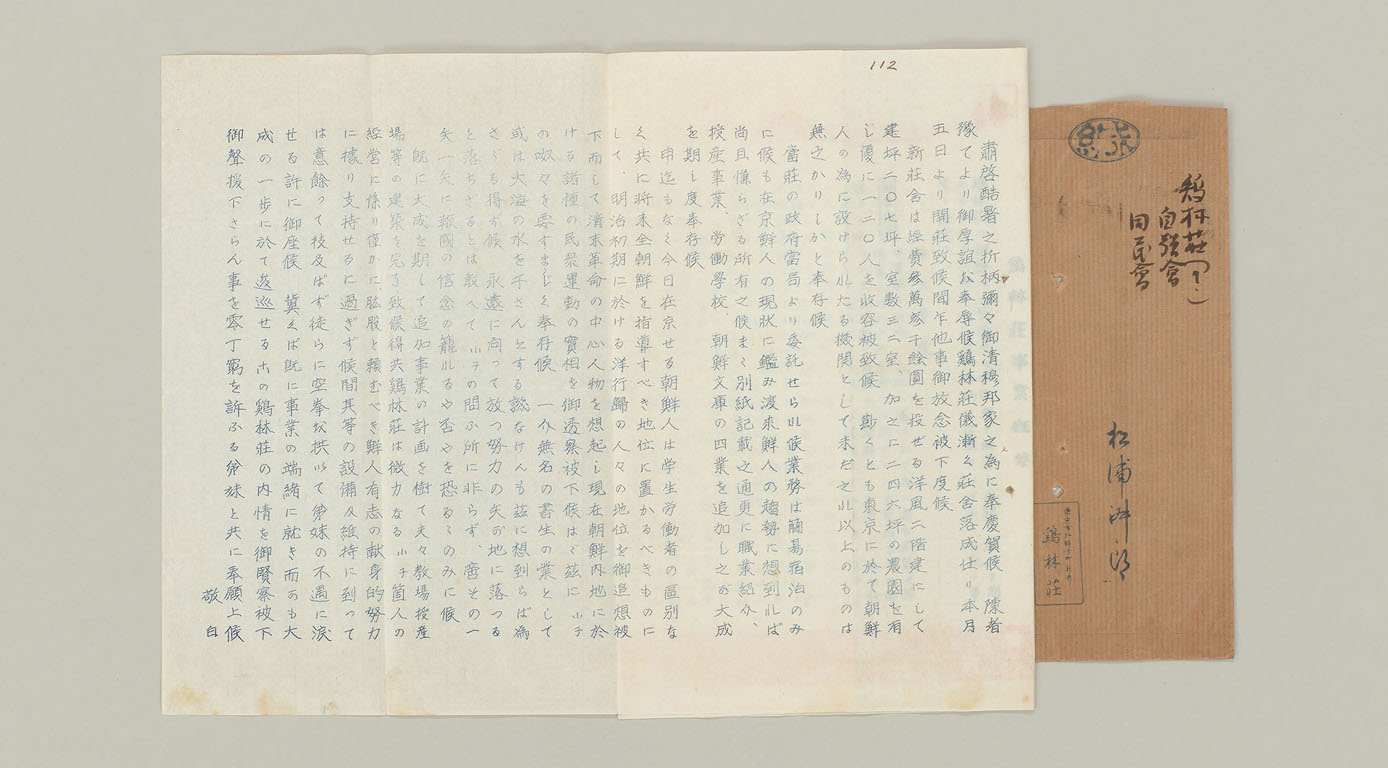 112
肅啓酷暑之折柄彌々御清穆邦家之為に奉慶賀候 陳者
豫てより御厚誼を奉辱候鶏林荘儀漸く荘舎落成仕り本月
五日より開荘致候間乍他事御放念被下度候
新荘舎は經費參萬參千餘圓を投せる洋風二階建にして
建坪二〇七坪、室数三二室、加之に二四六坪の農園を有
し優に一二〇人を收容被致候 勘くとも東京に於て朝鮮
人の為に設けられたる機関として未だ之れ以上のものは
無之かりしかと奉存候
當荘の政府當局より委託せられ候業務は簡易宿泊のみ
に候も在京鮮人の現状に鑑み渡来鮮人の趨勢に想到れば
尚且慊らざる所有之候まゝ別紙記載之通更に職業紹介、
授産事業、労働學校、朝鮮文庫の四業を追加し之が大成
を期し度奉存候
申迄もなく今日在京せる朝鮮人は学生労働者の區別な
く共に将来全朝鮮を指導すべき地位に置かるべきものに
して、明治初期に於ける洋行歸の人々の地位を御追想被
下而して清末革命の中心人物を想起し現在朝鮮内地に於
ける諸種の民衆運動の實相を御透察被下候はゞ茲に小子
の呶々を要すまじく奉存候 一介無名の書生の業として
或は大海の水を干さんとする譏なけんも茲に想到らば為
さゞる得ず候 永遠に向って放つ努力の矢の地に落つる
と落ちざるとは敢へて小子の問ふ所に非らず、啻その一
矢一矢に報國の信念の籠れるや否やを恐るゝのみに候
既に大成を期して追加事業の計画を樹て夫々教場授産
場等の建築を完了致候得共鶏林荘は微力なる小子箇人の
経営に係り僅かに肱股と頼むべき鮮人有志の献身的努力
に據り支持せるに過ぎず候間其等の設備及維持に到って
は意餘って技及ばず徒らに空拳を拱いて弟妹の不遇に涙
せる許に御座候 冀くば既に事業の端緒に就き而も大
成の一歩に於て逡巡せるこの鶏林荘の内情を御賢察被下
御聲援下さらん事を零丁窮を訴ふる弟妹と共に奉願上候
敬白
鶏林荘(?)
自強會
同民會
松浦
鶏林荘